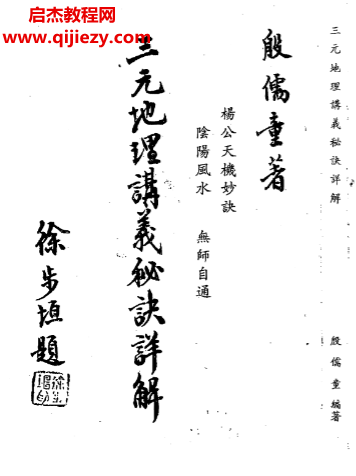 启杰教程网
www.qijiezy.com
三元地理講義秘訣詳解
殷儒童編著
殷儒童著
楊公天機妙訣
陰陽風水 無師自通
三元地理講義秘訣詳解
徐步垣題